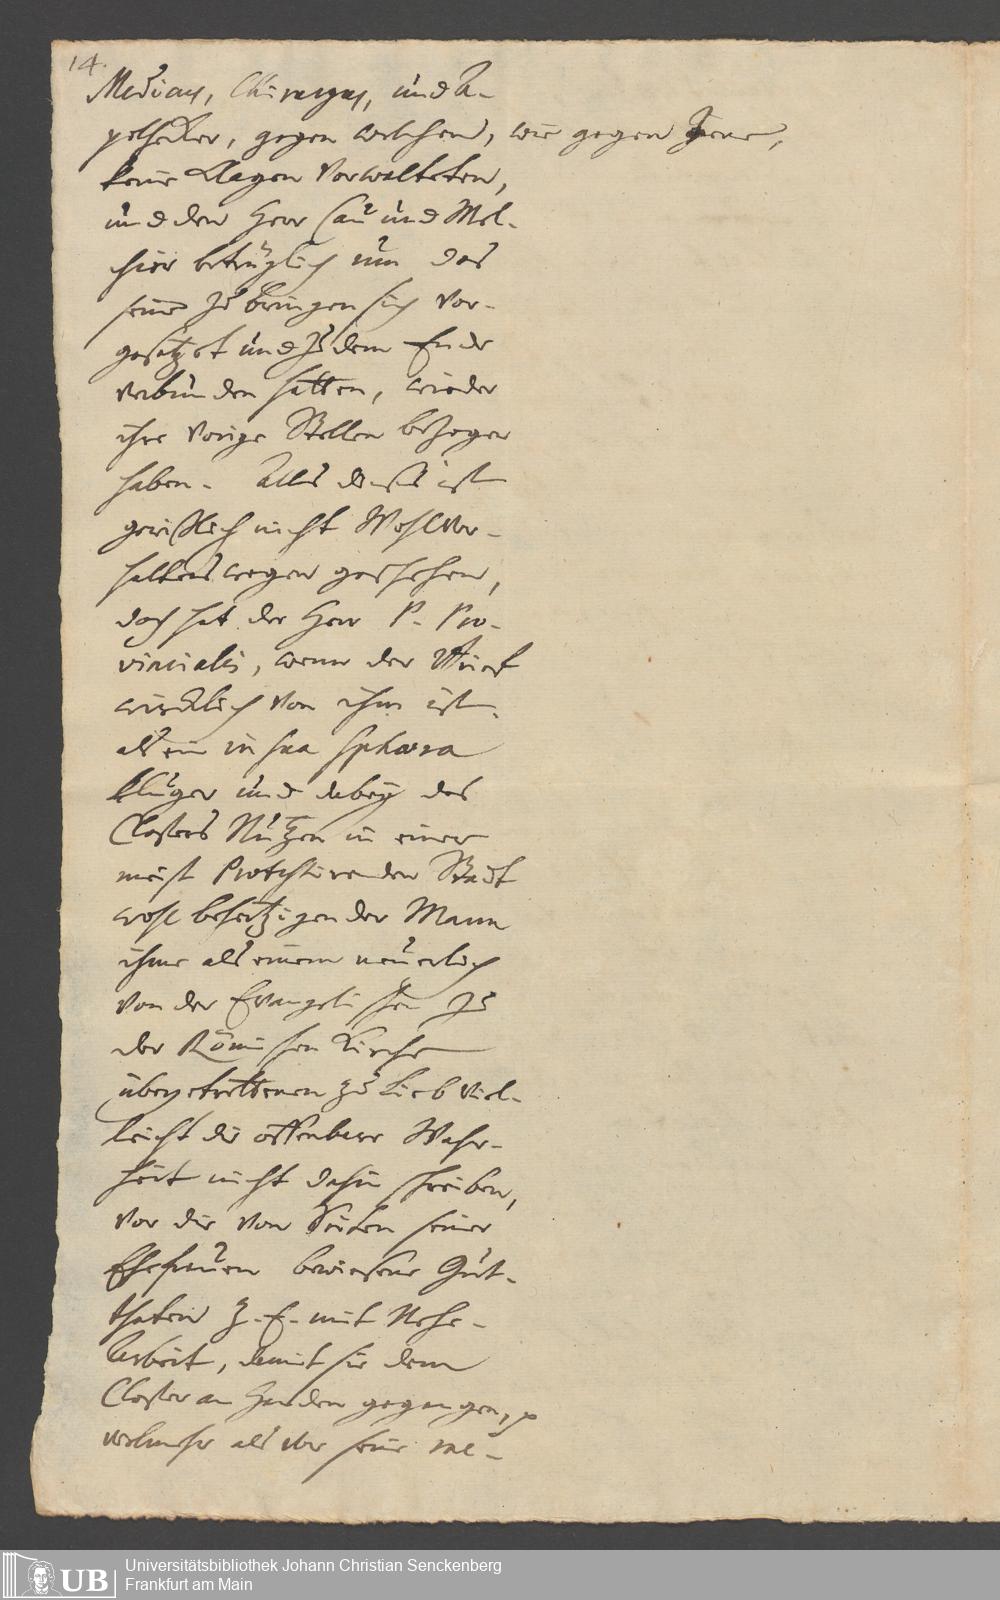 14.
Medicus, Chirurgus, und A-
potheker, gegen welchen, wie gegen jene,
keine Klagen vorwalteten,
und den Herr Cau und Mel-
chior betrüglich um das
seine zu bringen sich vor-
gesetzet und zu dem Ende
verbunden hatten, wieder
ihre vorige Stellen bezogen
haben. Alles dieses ist
gewißlich nicht Wohlver-
haltens wegen geschehen,
doch hat der Herr P. Pro-
vincialis, wenn der Brief
wircklich von ihm ist,
als ein in sua sphaera
kluger und dabey des
Closters Nutzen in einer
meist Protestirenden Stadt
wohl behertzigender Mann
ihme als einem neuerlich
von der Evangelischen zu
der Römischen Kirche
übergetrettenen zu Lieb viel-
leicht die offenbare Wahr-
heit nicht dahin schreiben,
vor die von Seiten seiner
Ehefrauen bewiesene Gut-
thaten z. E. mit Nehe-
Arbeit, damit sie dem
Closter an Handen gegangen,
vielmehr als vor seine me-
Universitätsbibliothek Johann Christian Senckenberg
Frankfurt am Main
UB